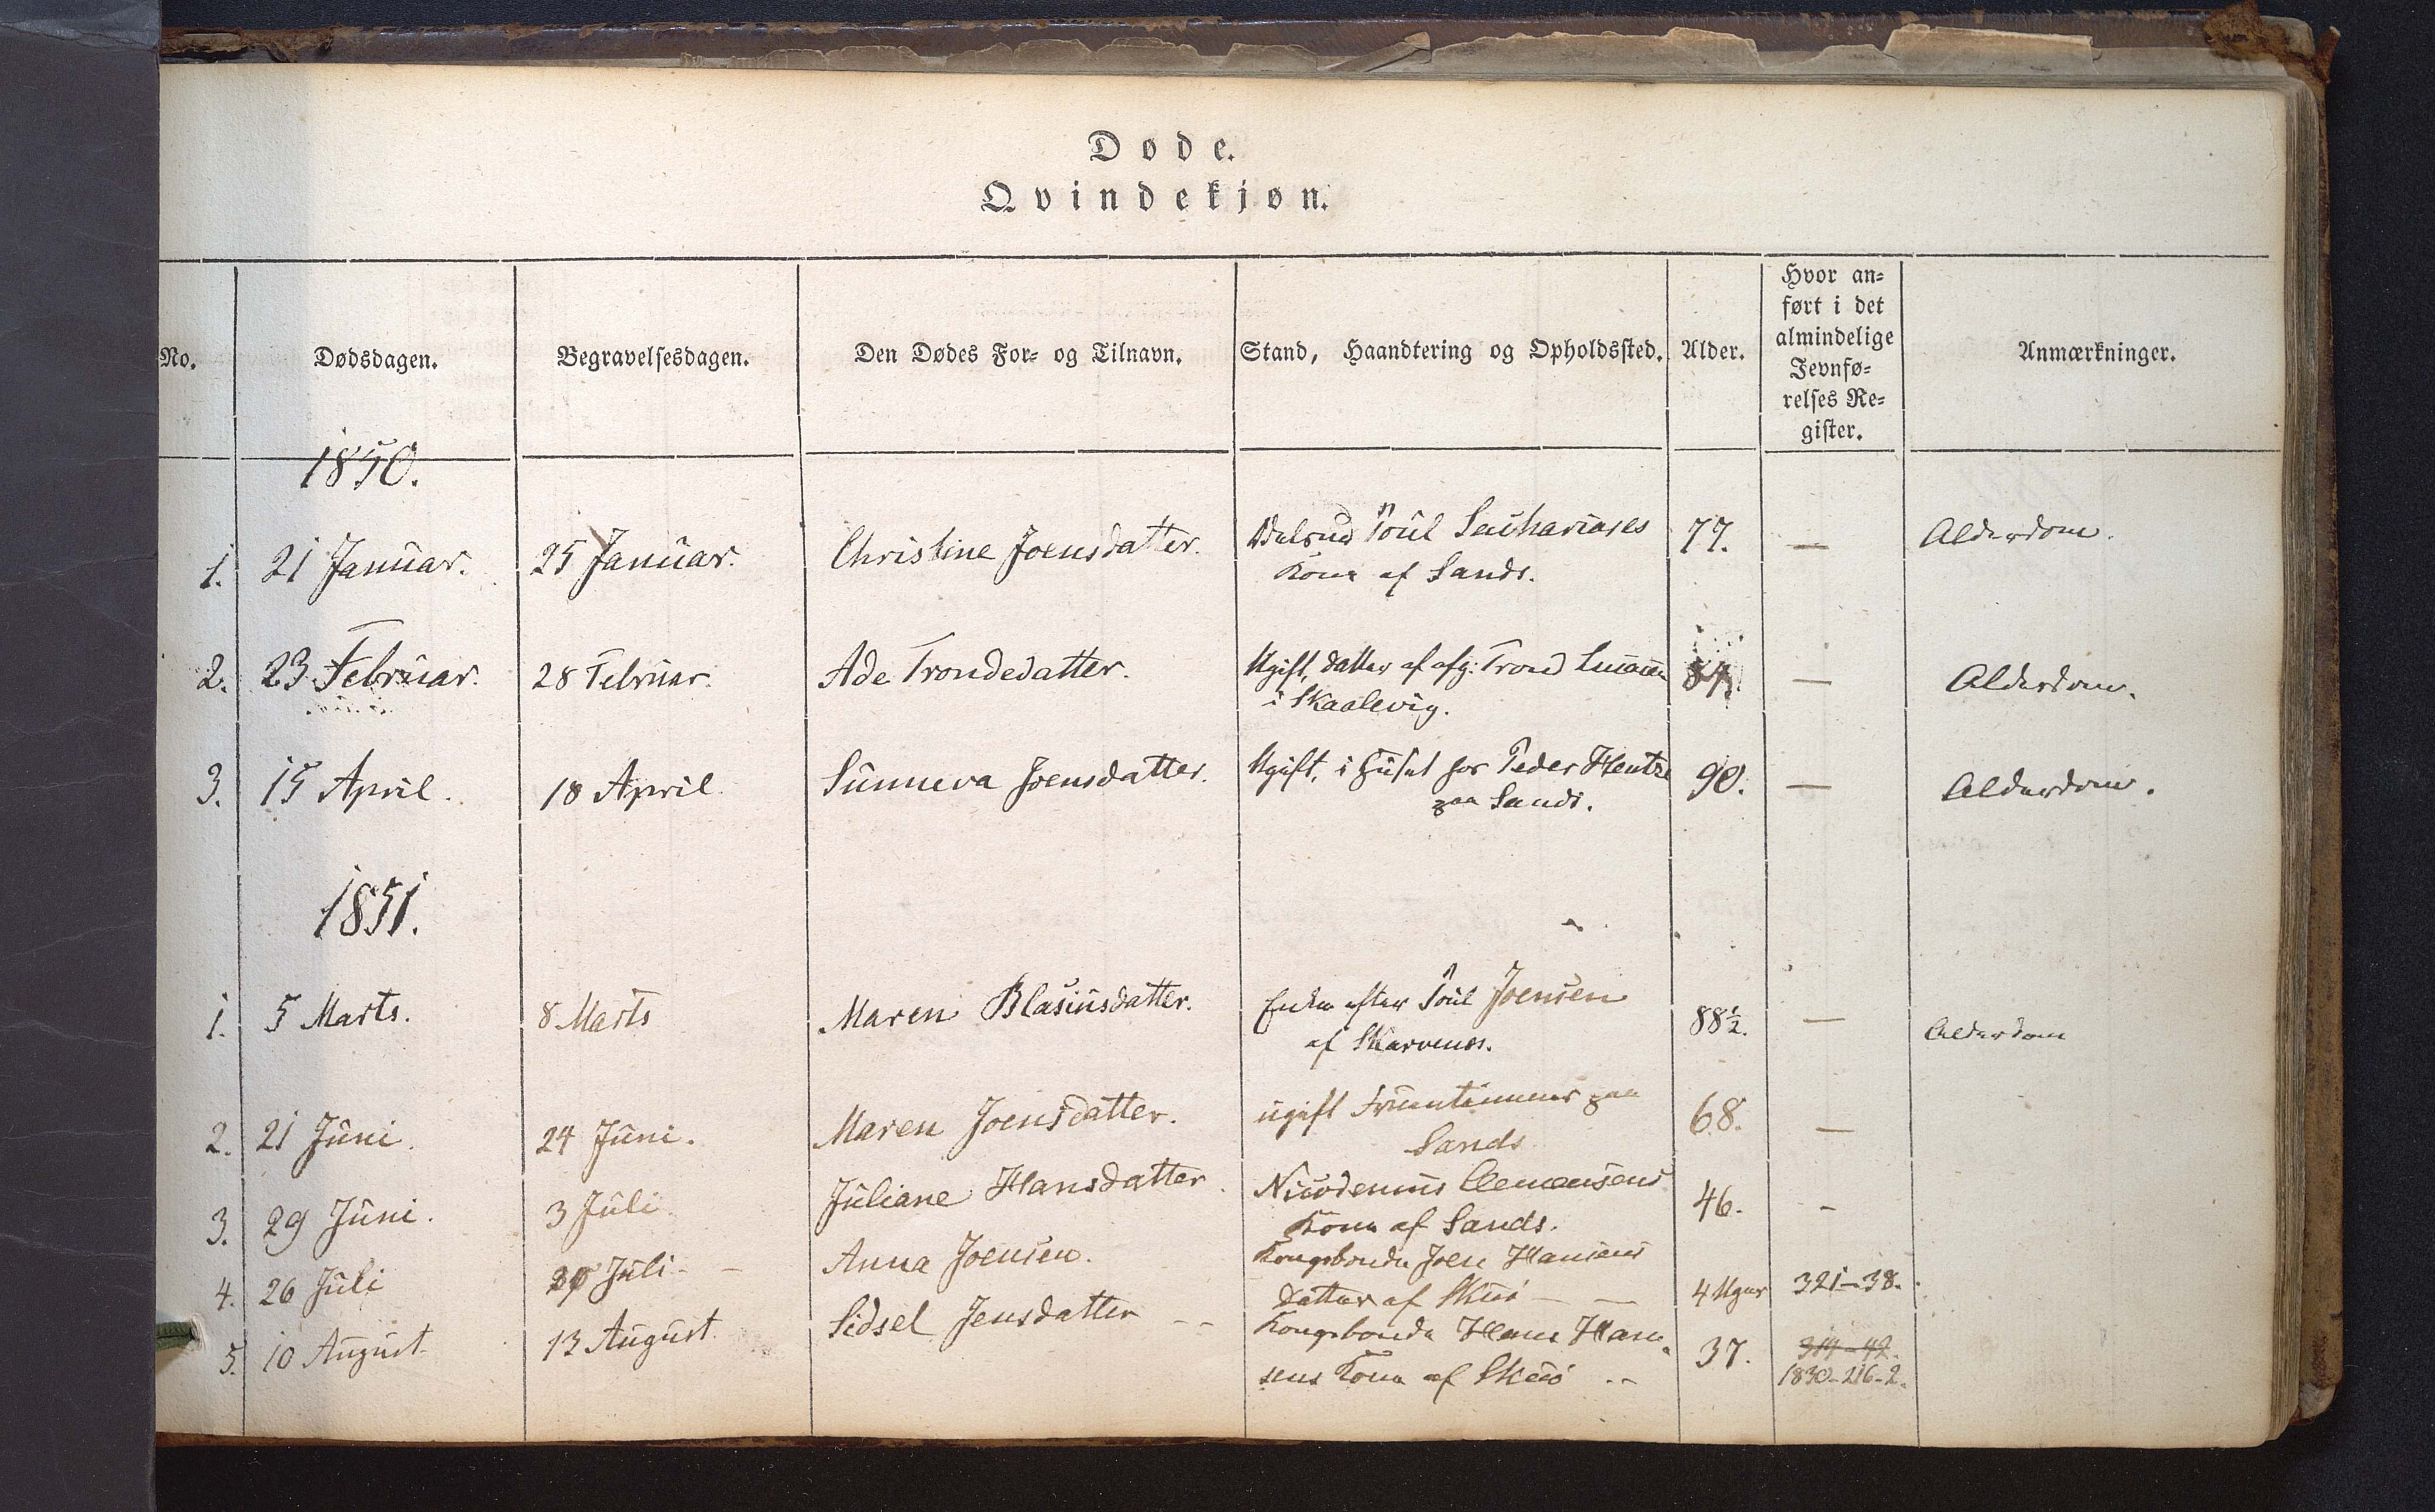 Døde.
Qvindekjøn.
No. Dødsdagen. Begravelsesdagen. Den Dødes For- og Tilnavn. Stand, Haandtering og Opholdssted. Alder. Hvor an-
ført i det
almindelige
Jevnfø-
relses Re-
gister. Anmærkninger.
1850.
1. 21 Januar. 25 Januar. Christine Joensdatter. Poul Sachariases 77. — Alderdom.
Kone af Sands.
2. 23 Februar. 28 Februar. Ade Trondedatter. Ugift, datter af afg: Trond — Alderdom.
i Skaalevig.
3. 15 April. 18 April. Sunneva Joensdatter. Ugift, i Huset hos Peder Hentze 90. — Alderdom.
paa Sands.
1851.
1. 5 Marts. 8 Marts Maren Blasiusdatter. Enke efter Poul Joensen 88½. — Alderdom
af Skarvenes.
2. 21 Juni. 24 Juni. Maren Joensdatter. ugift Fruentimmer paa 68. —
Sands
3. 29 Juni. 3 Juli. Juliane Hansdatter. Nicodemus Clemensens 46. -
Kone af Sands.
4. 26 Juli Juli - - Anna Joensen. Kongsbonde Joen Hansens 4 Uger 321-38.
Datter af Skuö — —
5. 10 August 13 August. Sidsel Jensdatter - - Kongsbonde Hans Han- 37. 314-42.
sens Kone af Skuö -- 1830-216-2.